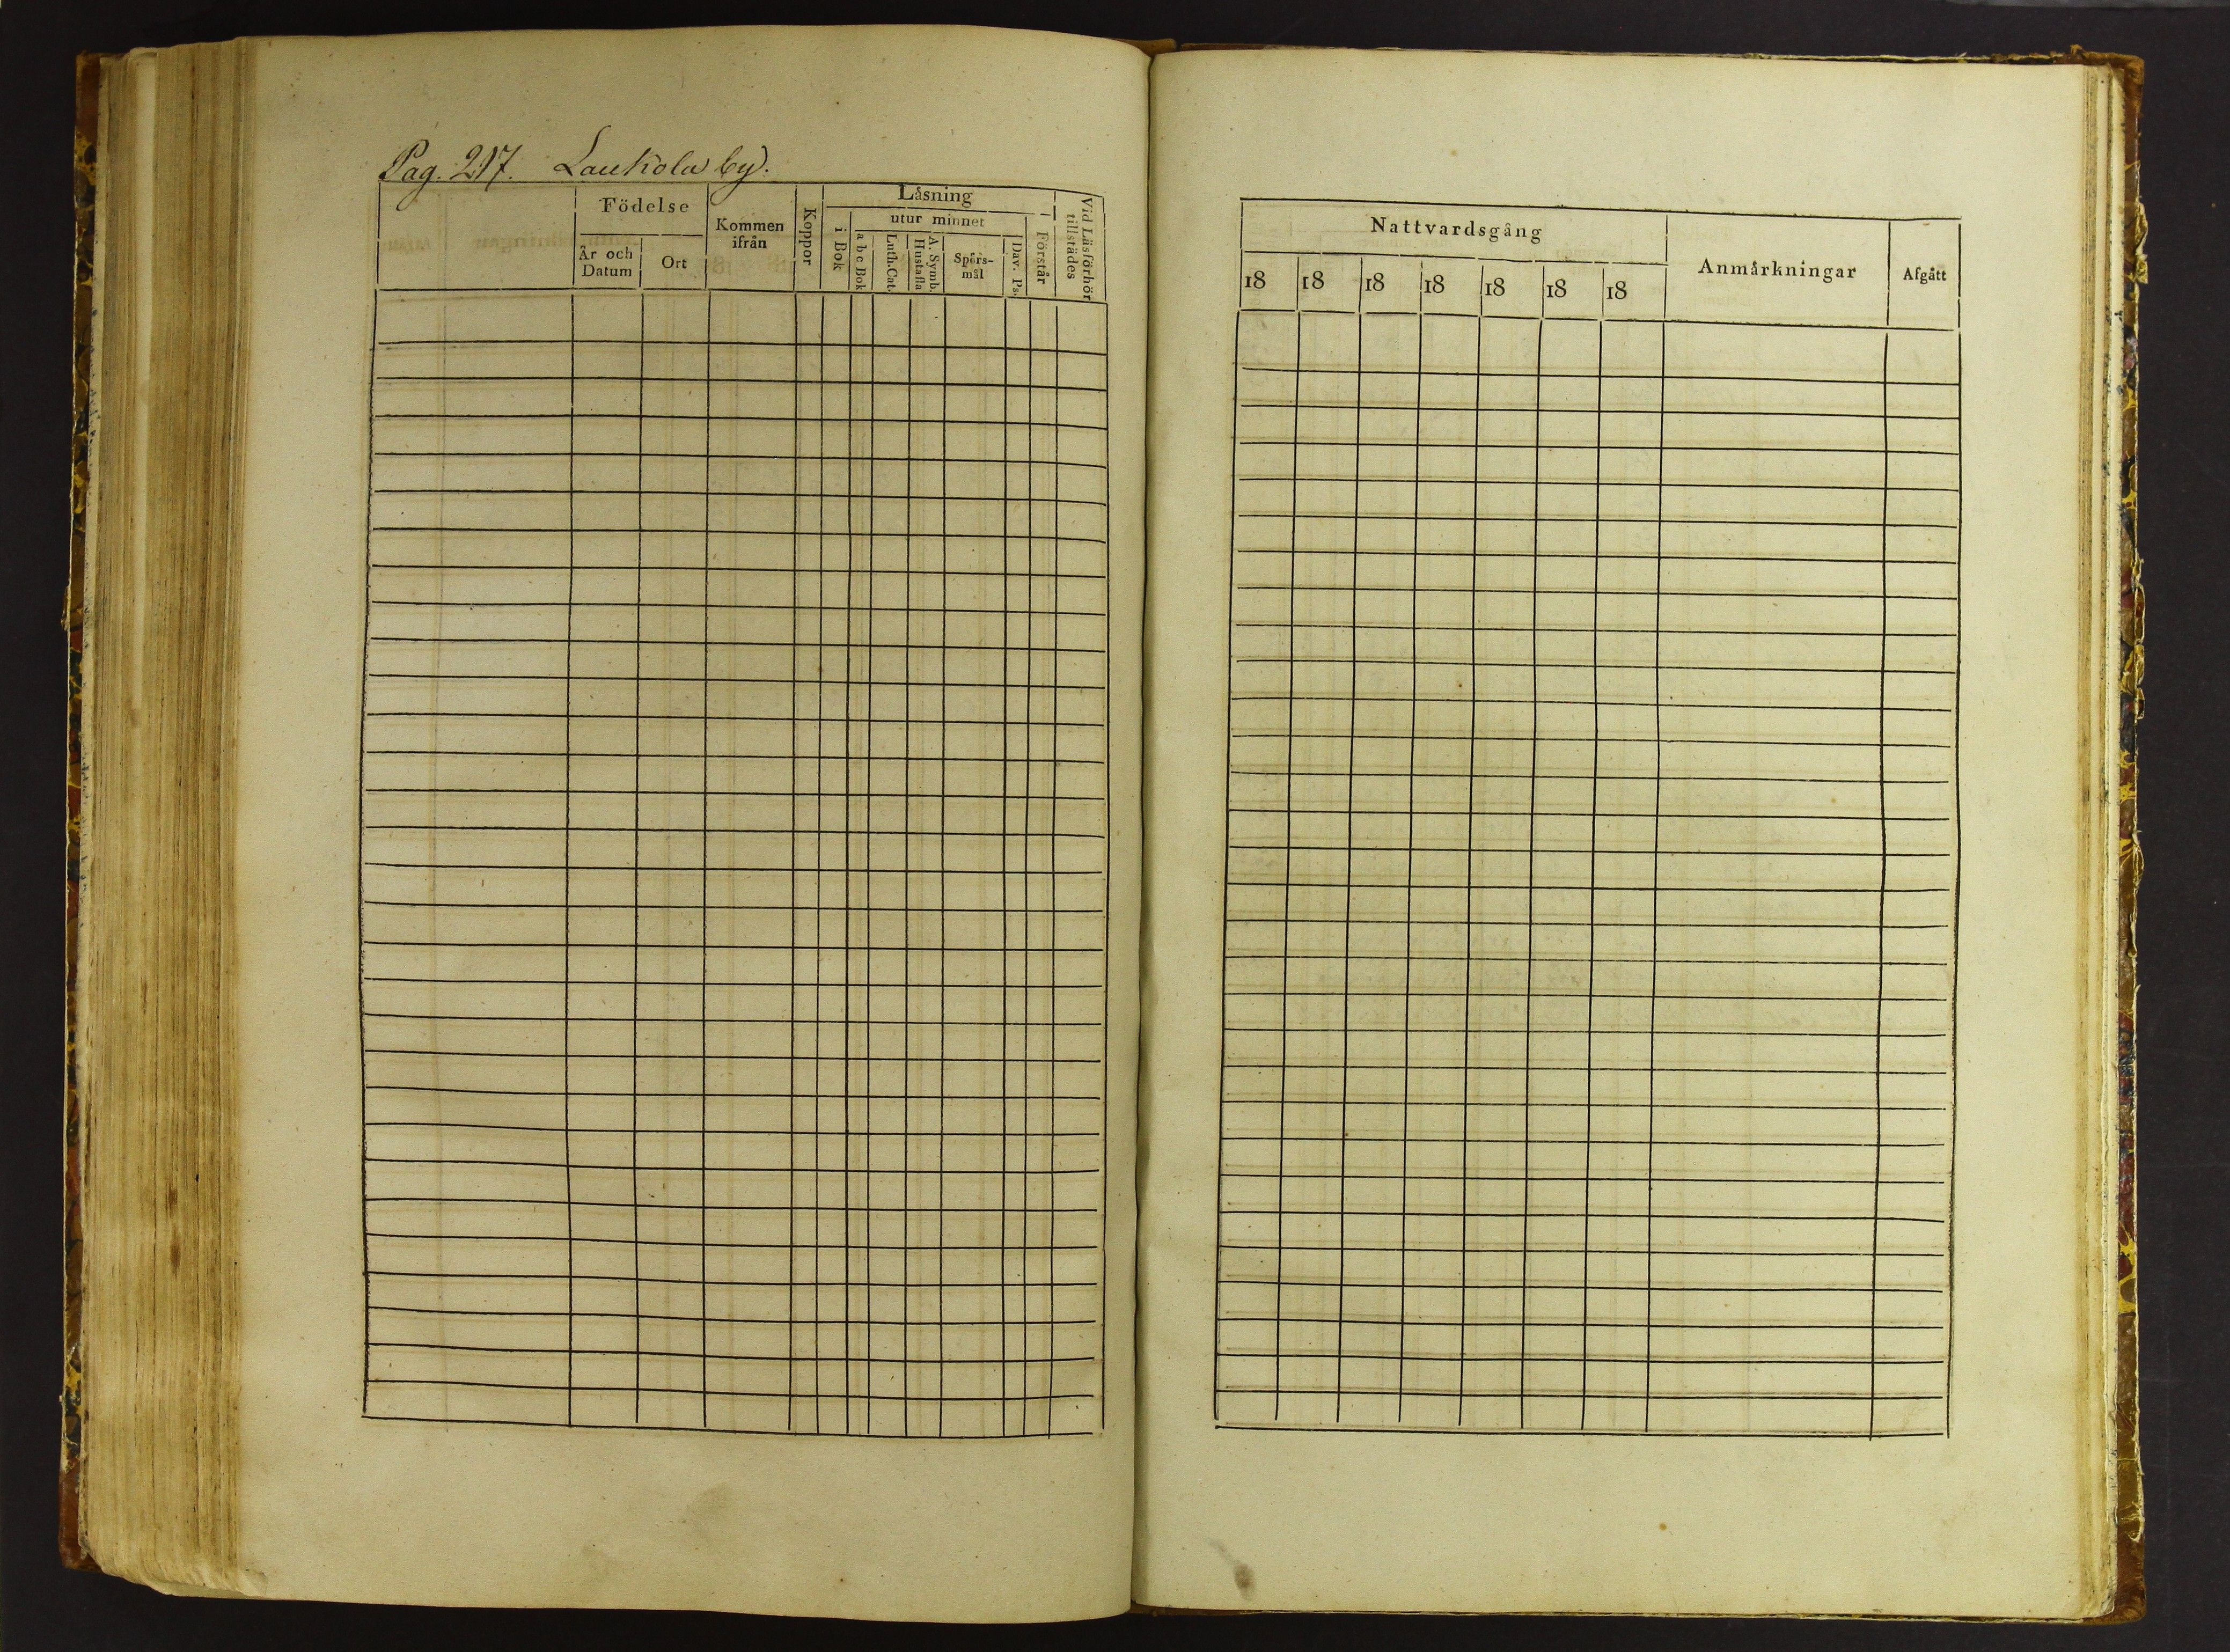 Pag. 217. Laukola by.
Födelse
År och Datum
Ort
Kommen ifrån
Koppor
Läsning
i Bok
utur minnet
a b c Bok
Luth. Cat.
A. Symb. Hustafla
Spörs-mål
Dav. Ps.
Förstår
Vid Läsförhör tillstädes
Nattvardsgång
18 18 18 18 18 18 18
Anmärkningar
Afgått